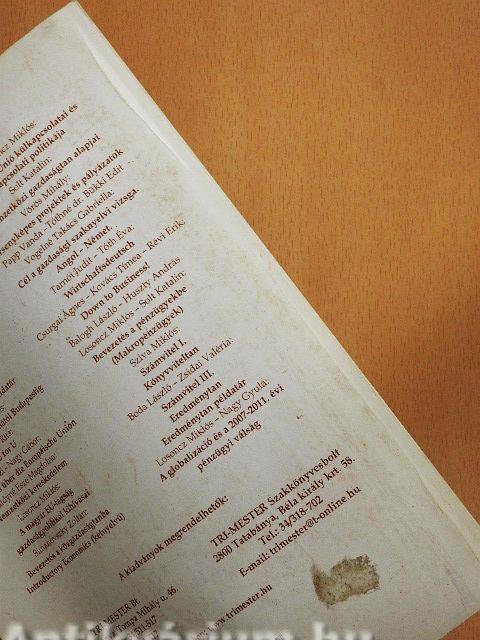 Miklós:
külkapcsolatai és
politikája
Solt Katalin:
gazdaságtan alapjai
Vörös Mihály:
projektek és pályázatok
Papp Vanda -Tóthné dr. Bükki Edit
Vogelné Takács Gabriella:
Cél a gazdasági szaknyelvi vizsga.
Angol - Német.
Tarnói Judit - Tóth Éva:
Wirtschaftsdeutsch
Csurgai Ágnes - Kovács Tímea - Révi Erik:
Down to Business!
Balogh László - Huszty András
Losoncz Miklós - Solt Katalin:
Bevezetés a pénzügyekbe
(Makropénzügyek)
Sziva Miklós:
Számvitel I.
Könyvviteltan
Boda László - Zsidai Valéria:
Számvitel III.
Eredménytan
Eredménytan példatár
Losoncz Miklós - Nagy Gyula:
A globalizáció és a 2007-2011. évi
pénzügyi válság
Budapestig
for U
Nagy Gábor:
über die Europäische Union
Losoncz Miklós:
A magyar EU-tagság
gazdaságpolitikai kihívásai
Simanovszky Zoltán:
Bevezetés a közgazdaságtanba
Introductory Economics (kétnyelvű)
A kiadványok megrendelhetők:
TRI-MESTER Szakkönyvesbolt
2800 Tatabánya, Béla király krt. 58.
Tel.: 34/318-702
E-mail: trimester@t-online.hu
TRI-MESTER Bt.
Tomya Mihály u. 46.
511-517
www.trimester.hu
Antikvárium.hu